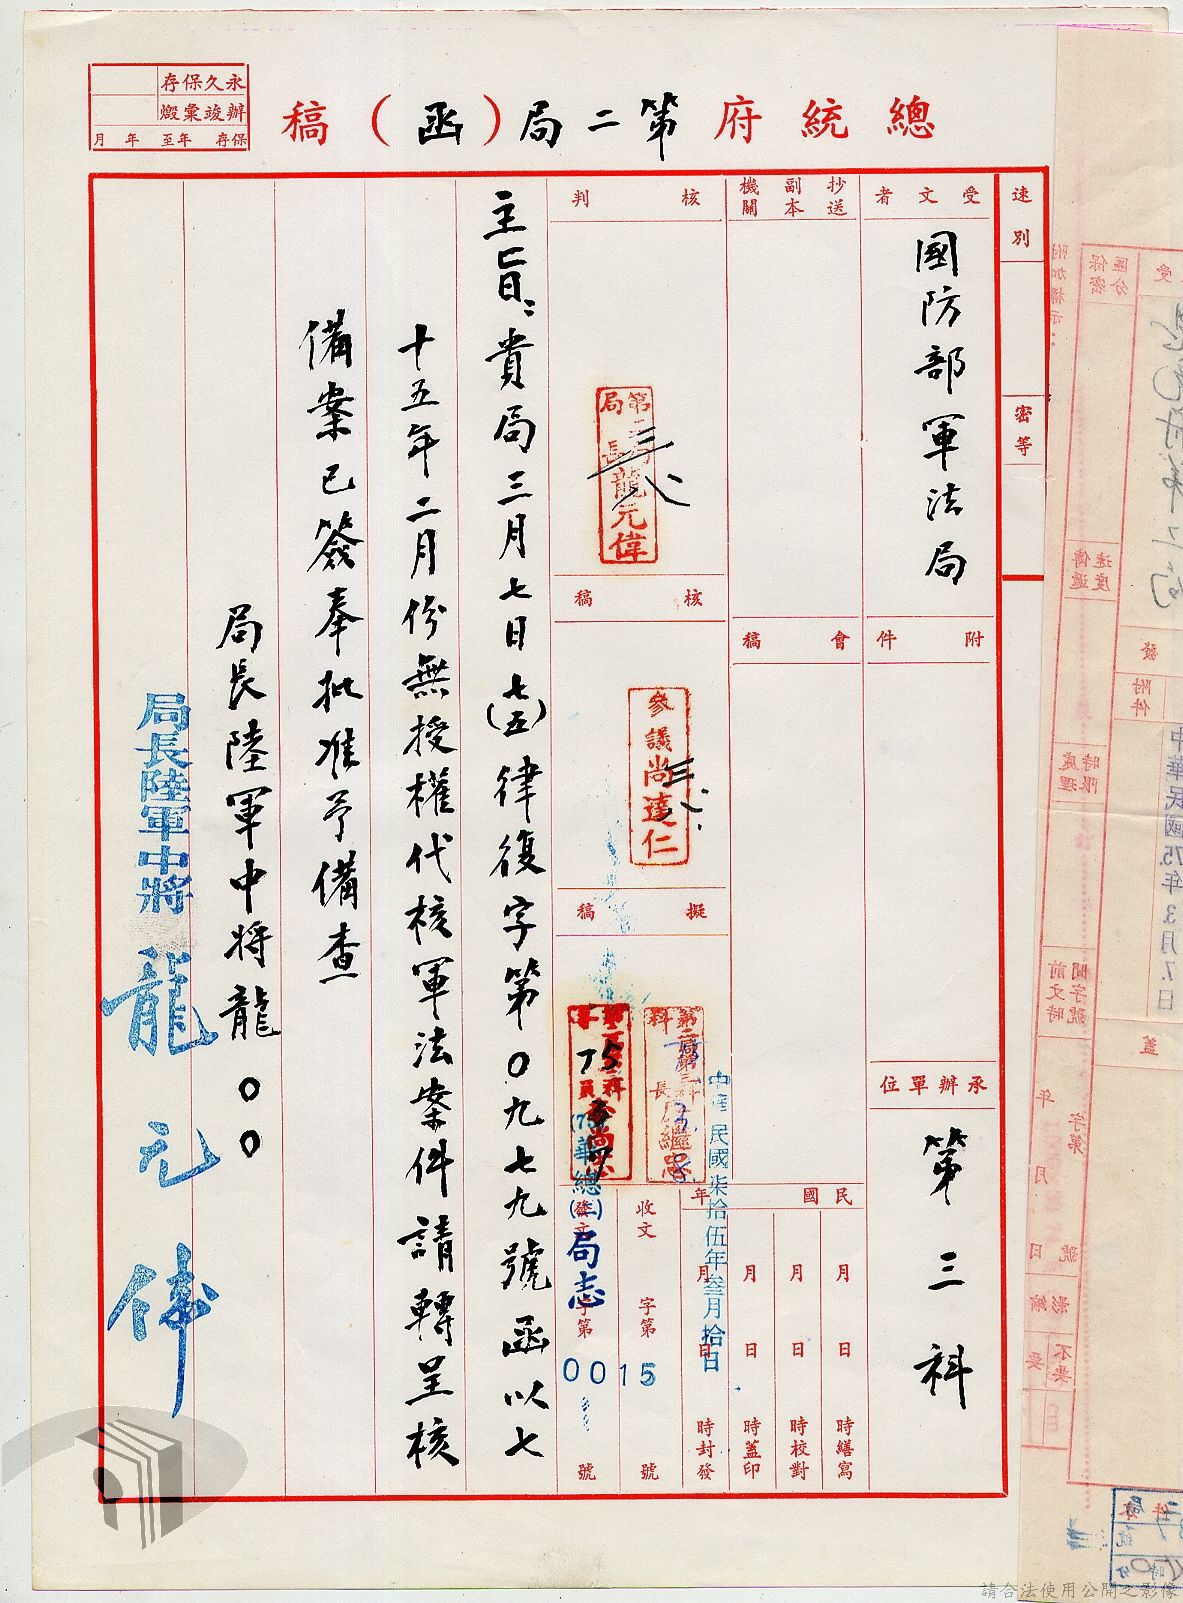 總統府第二局（函）稿
永久保存
辦竣彙燬
保存 年至 年 月
速別
密等
受文者
國防部軍法局
附件
承辦單位
第三科
抄送
副本
機關
會稿
核判
第二局
局長龍元偉
三八
核稿
參議尚達仁
三八
擬稿
民國 年
月 日 時繕寫
月 日 時校對
月 日 時蓋印
月 日 時封發
中華民國柒拾伍年叁月拾日
收文 字第 號
發文 字第 號
(75)華總(二)局志
0015
主旨：貴局三月七日(七五)律復字第0九七九號函以七
十五年二月份無授權代核軍法案件請轉呈核
備案已簽奉批准予備查
局長陸軍中將龍○○
局長陸軍中將 龍元偉
中華民國75.年3.月7.日
請合法使用公開之影像